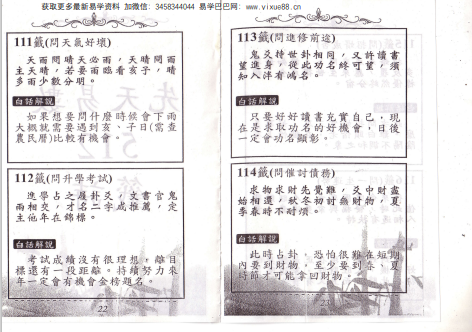 获取更多最新易学资料 加微信：3458344044 易学巴巴网：www.vixue88.cn
111籤(問天氣好壞)
天雨問晴天必雨，天晴問雨
主天晴，若要雨臨看亥子，晴
多雨少數分明。
白話解說
如果想要問什麼時候會下雨
大概就需要遇到亥、子日(需查
農民曆)比較有機會。
112籤(問升學考試)
進學占之履卦爻，文書官鬼
兩相交，才名二字成推薦，定
主他年在錦標。
白話解說
考試成績沒有很理想，離目
標還有一段距離。持續努力來
年一定會有機會金榜題名。
22
113籤(問進修前途)
鬼爻持世卦相同，又許讀書
望進身，從此功名終可望，須
知入泮有鴻名。
白話解說
只要好好讀書充實自己，現
在是求取功名的好機會，日後
一定會功名顯彰。
114籤(問催討債務)
求物求財先覺難，爻中財盡
始相還，秋冬初討無財物，夏
季春時不耐煩。
白話解說
此時占卦，恐怕很難在短期
內要到財物，至少要到春、夏
時節才可能拿回財物。
23